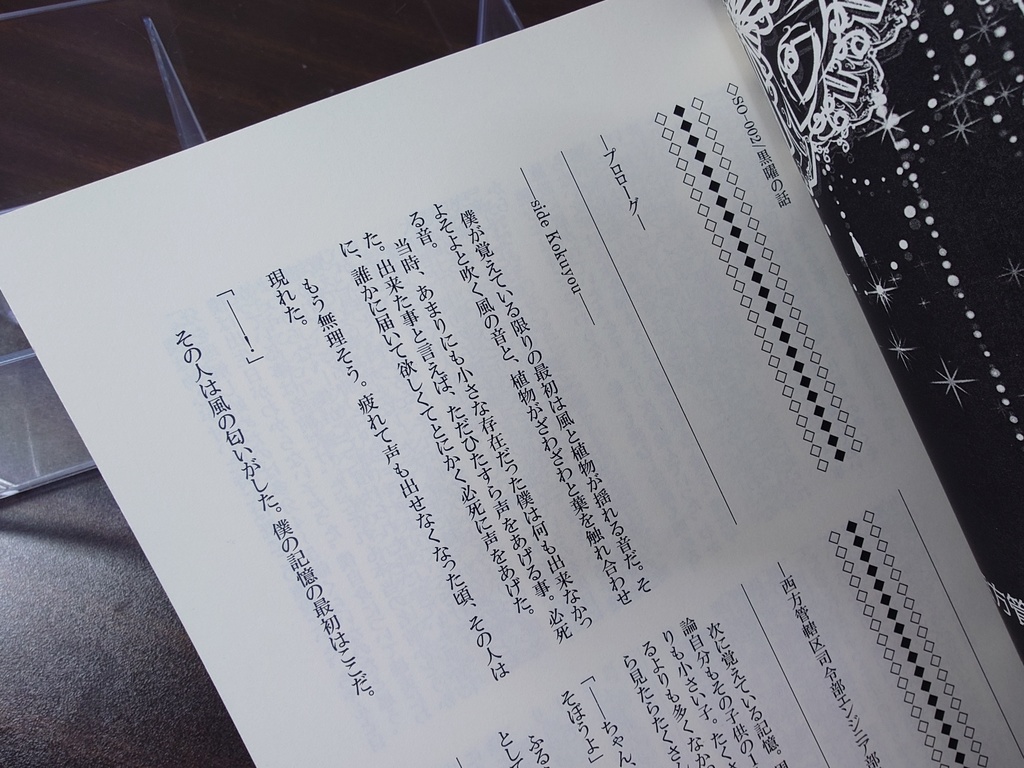 ◇SO-002/黒曜の話
―プロローグ―
―side Kokuyou―
僕が覚えている限りの最初は風と植物が揺れる音だ。そ
よそよと吹く風の音と、植物がざわざわと葉を触れ合わせ
る音。
当時、あまりにも小さな存在だった僕は何も出来なかっ
た。出来た事と言えば、ただひたすら声をあげる事。必死
に、誰かに届いて欲しくてとにかく必死に声をあげた。
もう無理そう。疲れて声も出せなくなった頃、その人は
現れた。
「―――！」
その人は風の匂いがした。僕の記憶の最初はここだ。
―西方管轄区司令部エンジニア部
次に覚えている記憶。
論自分もその子供の1
りも小さい子。たくさ
るよりも多くなか
ら見たらたくさん
「――ちゃん、
そほうよ」
ふる
として